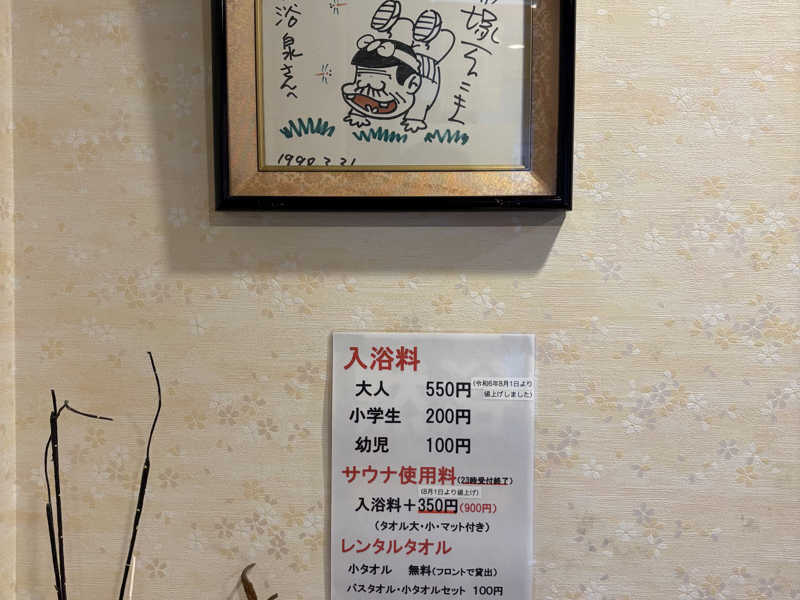 浴泉さんへ
1990.2.21
入浴料
大人 550円 (令和6年8月1日より
値上げしました)
小学生 200円
幼児 100円
サウナ使用料 (23時受付終了)
(8月1日より値上げ)
入浴料＋350円(900円)
(タオル大・小・マット付き)
レンタルタオル
小タオル 無料(フロントで貸出)
バスタオル・小タオルセット 100円